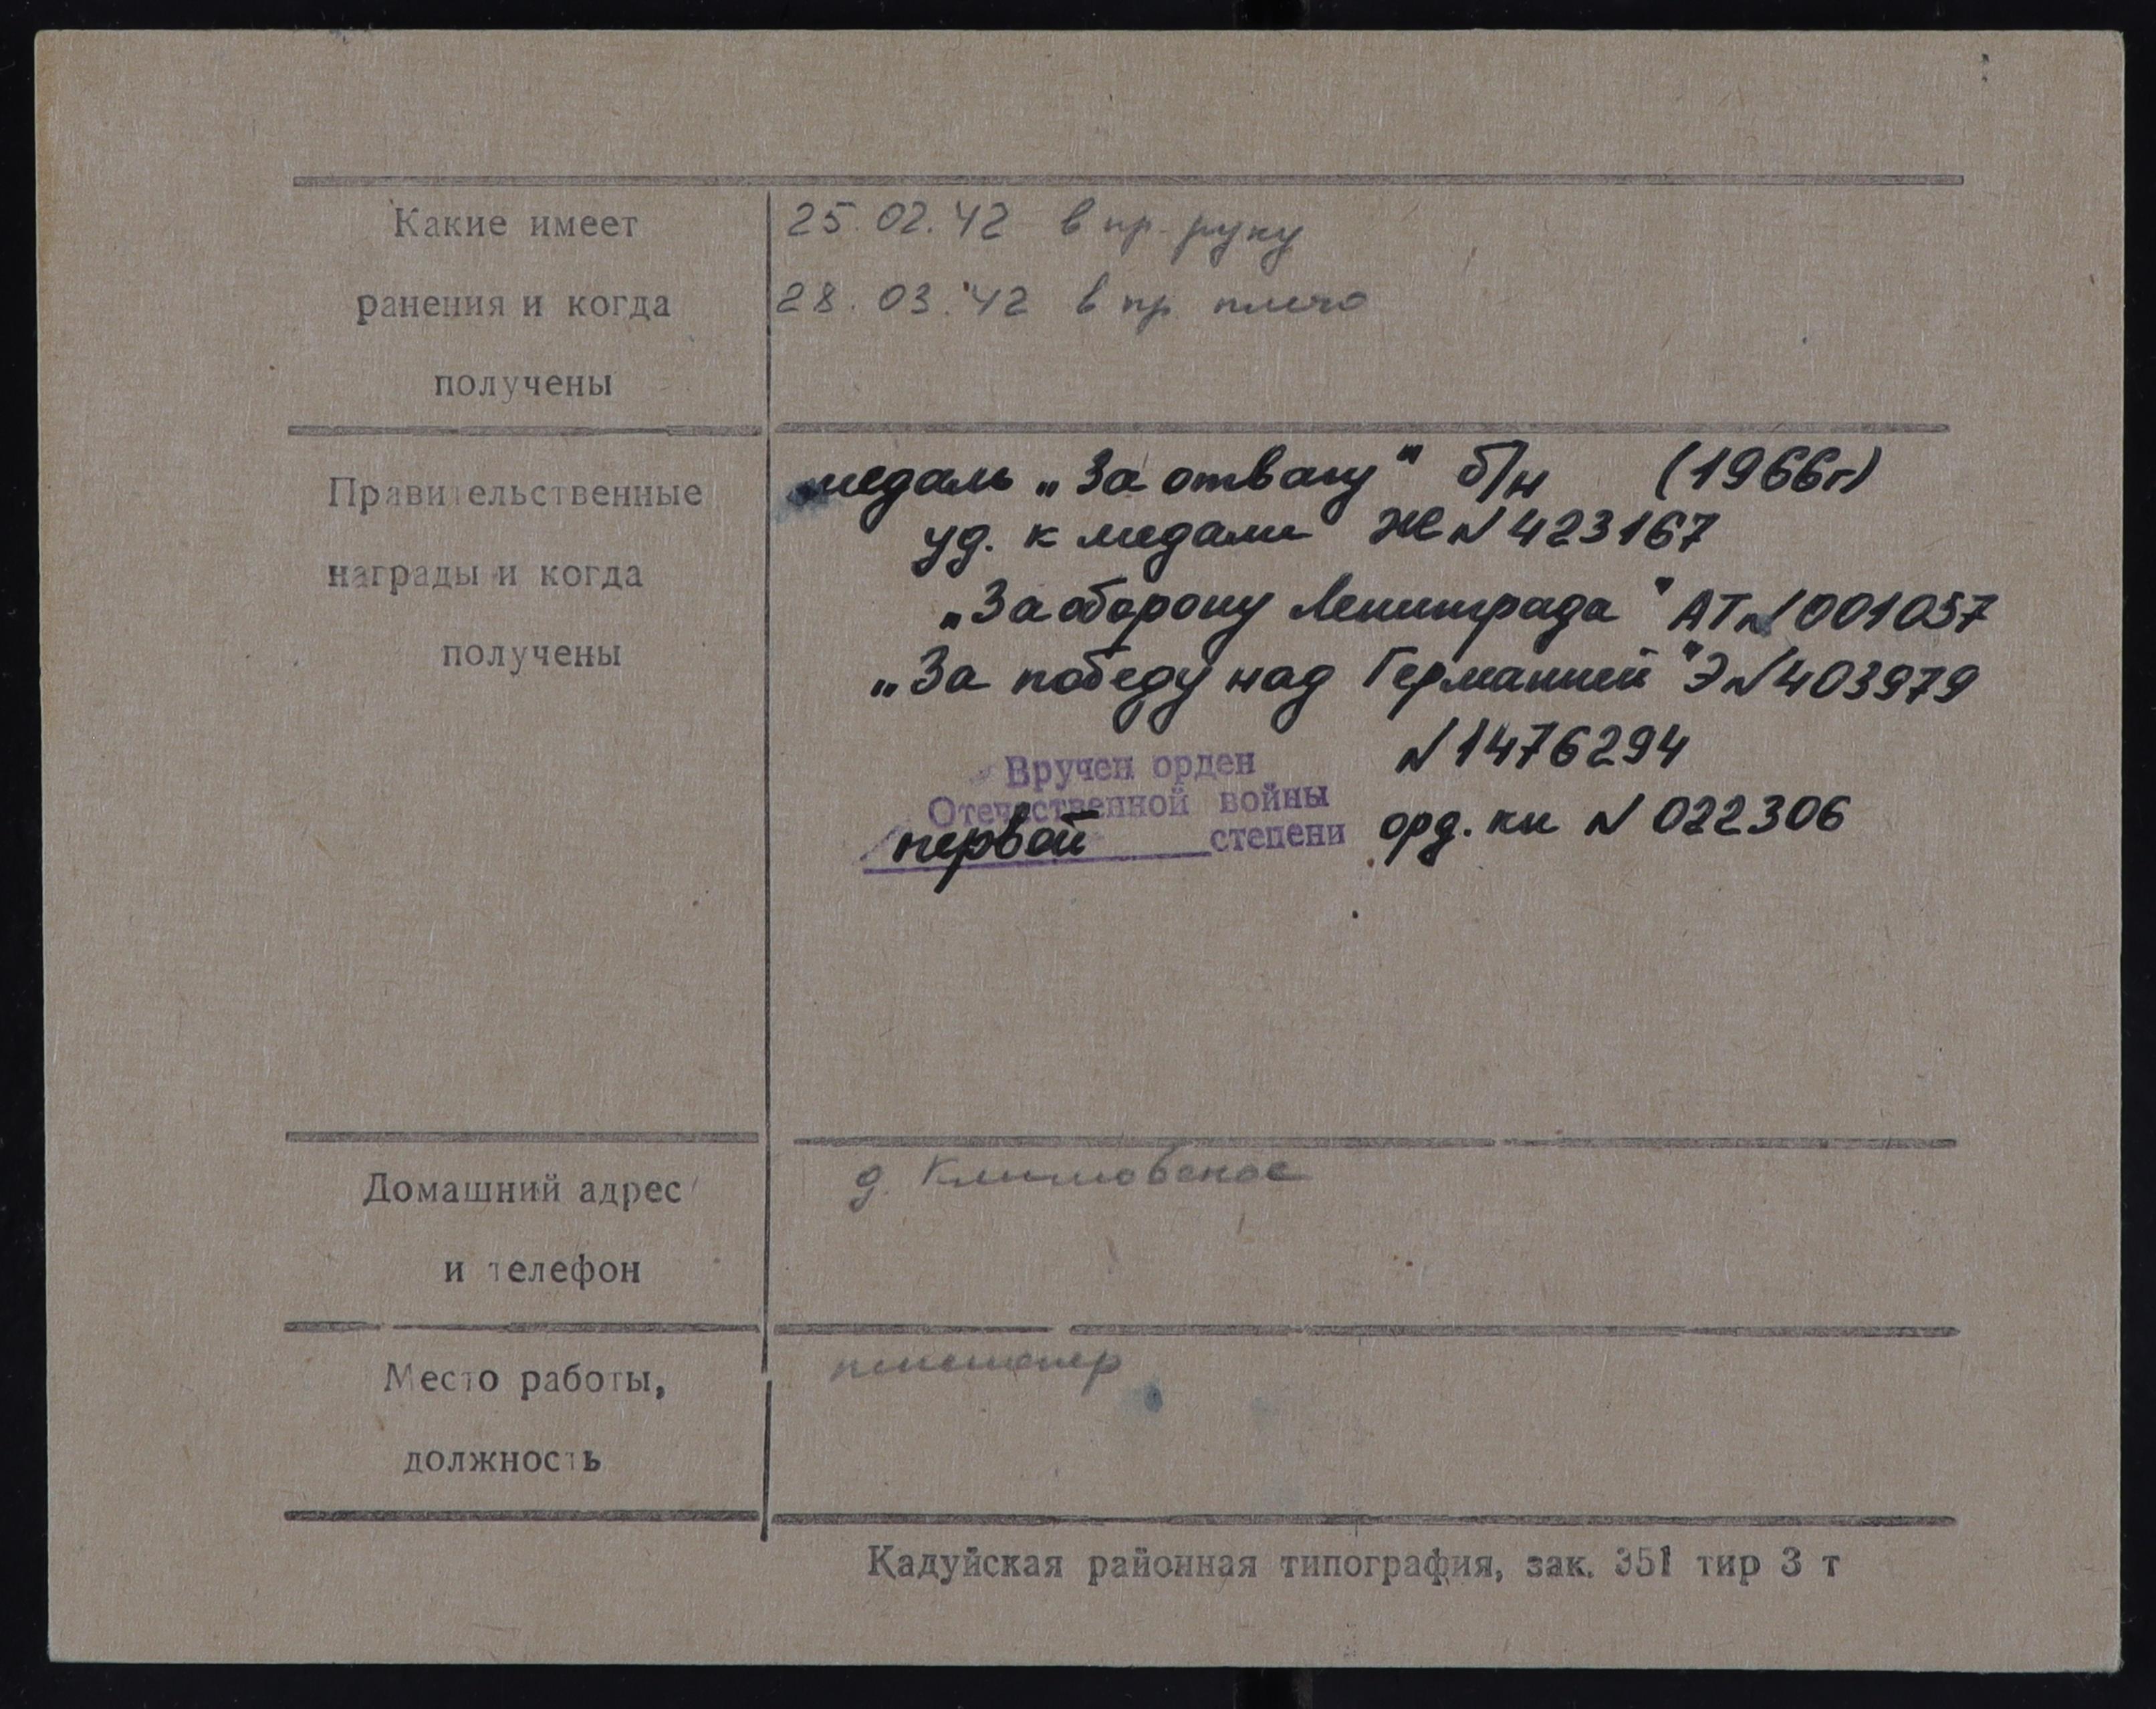 Какие имеет
ранения и когда
получены
25.02.42 в пр. руку
28.03.42 в пр. плечо
Правительственные
награды и когда
получены
медаль „За отвагу" б/н (1966г)
уд. к медали Ж N 423167
„За оборону Ленинграда" АТ N 001057
„За победу над Германией" Э N 403979
N 1476294
Вручен орден
Отечественной войны
первой степени
орд. кн N 022306
Домашний адрес
и телефон
д. Климовское
Место работы,
должность
пенсионер
Кадуйская районная типография, зак. 351 тир 3 т